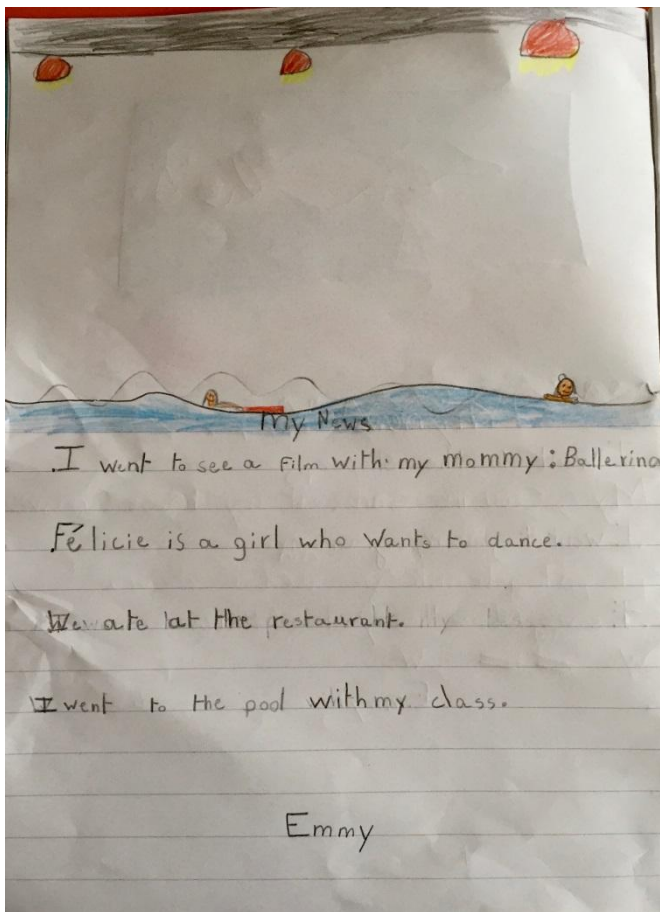 My News
.I went to see a film with my mommy : Ballerina
Félicie is a girl who wants to dance.
We ate at the restaurant.
I went to the pool with my class.
Emmy